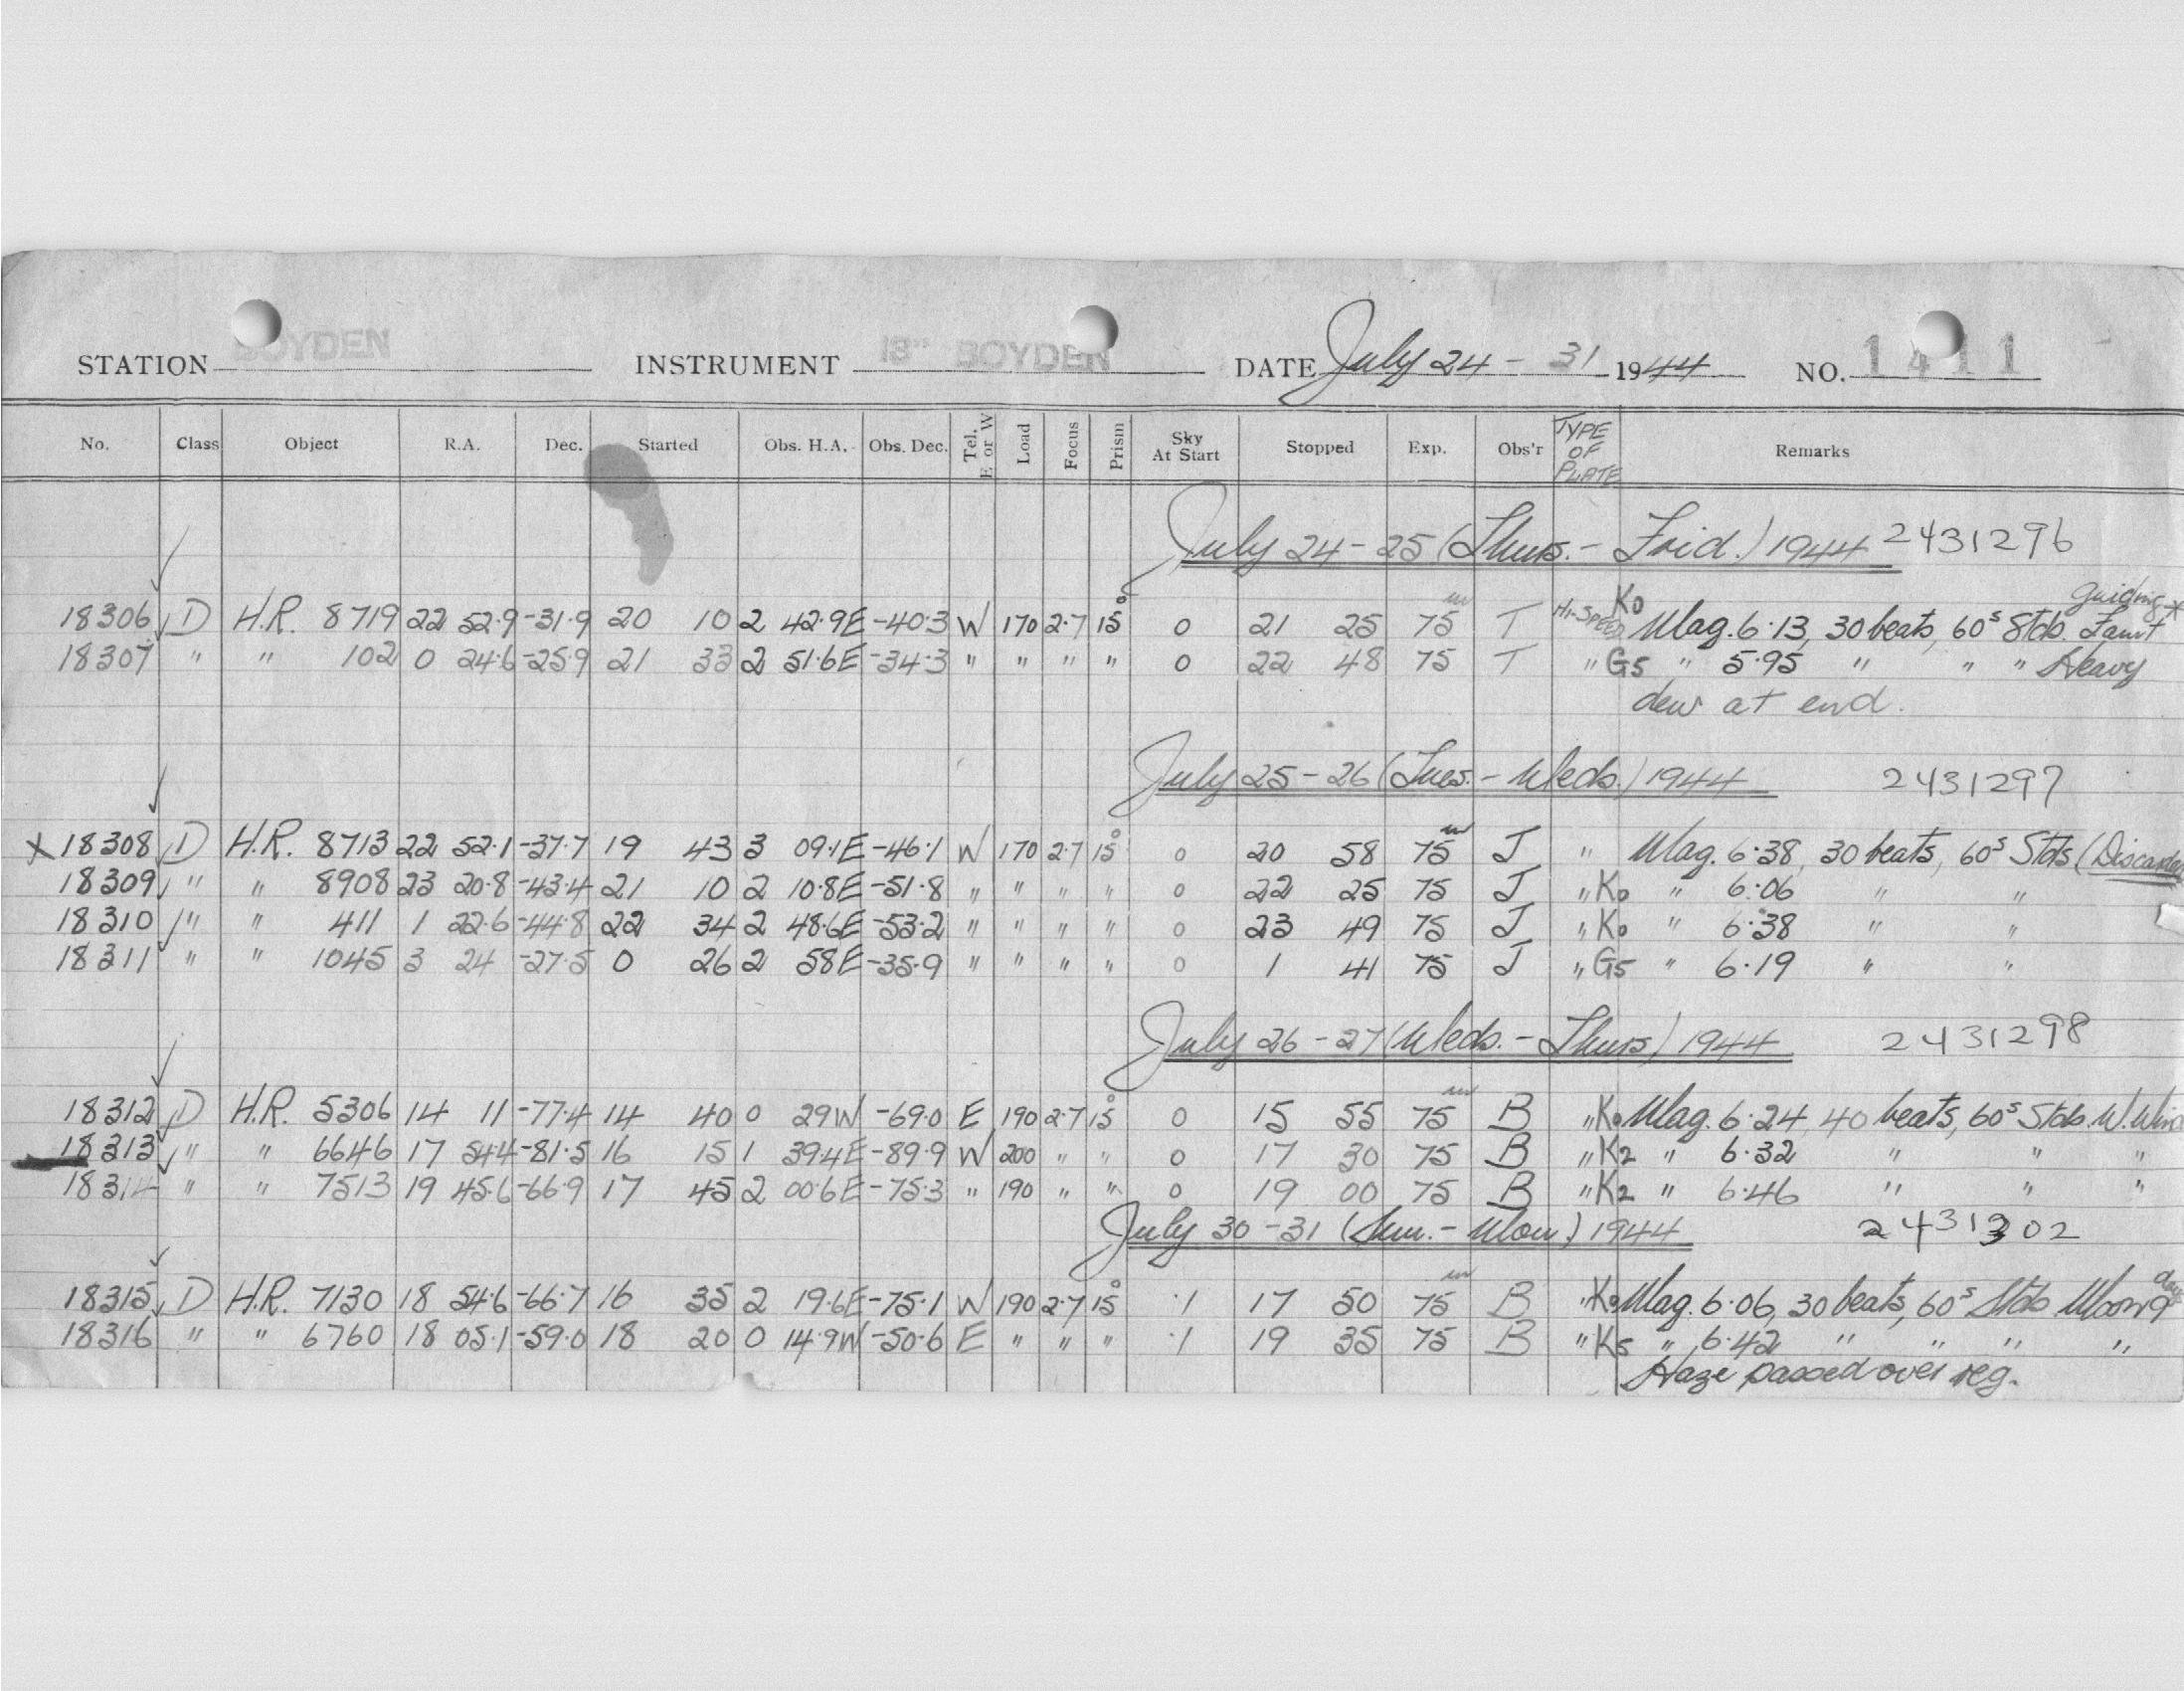 STATION BOYDEN INSTRUMENT 13" BOYDEN DATE July 24 - 31 1944 NO. 1411
No. Class Object R.A. Dec. Started Obs. H.A. Obs. Dec. Tel. E or W Load Focus Prism Sky At Start Stopped Exp. Obs'r TYPE OF PLATE Remarks
July 24-25 (Thurs.- Frid.) 1944 2431296
18306 D H.R. 8719 22 52.9 -31.9 20 10 2 42.9E -40.3 W 170 2.7 15° 0 21 25 75m T Hi-SPEED K0 Mag. 6.13, 30 beats, 60s Stds. guiding * Faint
18307 " " 102 0 24.6 -25.9 21 33 2 51.6E -34.3 " " " " 0 22 48 75 T " G5 " 5.95 " " " Heavy
dew at end.
July 25-26 (Tues.- Weds.) 1944 2431297
X 18308 D H.R. 8713 22 52.1 -37.7 19 43 3 09.1E -46.1 W 170 2.7 15° 0 20 58 75m J " Mag. 6.38, 30 beats, 60s Stds
18309 " " 8908 23 20.8 -43.4 21 10 2 10.8E -51.8 " " " " 0 22 25 75 J " K0 " 6.06 " "
18310 " " 411 1 22.6 -44.8 22 34 2 48.6E -53.2 " " " " 0 23 49 75 J " K0 " 6.38 " "
18311 " " 1045 3 24 -27.5 0 26 2 58E -35.9 " " " " 0 1 41 75 J " G5 " 6.19 " "
July 26-27 (Weds.- Thurs) 1944 2431298
18312 D H.R. 5306 14 11 -77.4 14 40 0 29W -69.0 E 190 2.7 15° 0 15 55 75m B " K0 Mag. 6.24, 40 beats, 60s Stds. W.
18313 " " 6646 17 54.4 -81.5 16 15 1 39.4E -89.9 W 200 " " 0 17 30 75 B " K2 " 6.32 " " "
18314 " " 7513 19 45.6 -66.9 17 45 2 00.6E -75.3 " 190 " " 0 19 00 75 B " K2 " 6.46 " " "
July 30-31 (Sun.- Mon.) 1944 2431302
18315 D H.R. 7130 18 54.6 -66.7 16 35 2 19.6E -75.1 W 190 2.7 15° .1 17 50 75m B " K0 Mag. 6.06, 30 beats, 60s Stds Moon 9
18316 " " 6760 18 05.1 -59.0 18 20 0 14.9W -50.6 E " " " .1 19 35 75 B " K5 " 6.42 " " " "
Haze passed over reg.